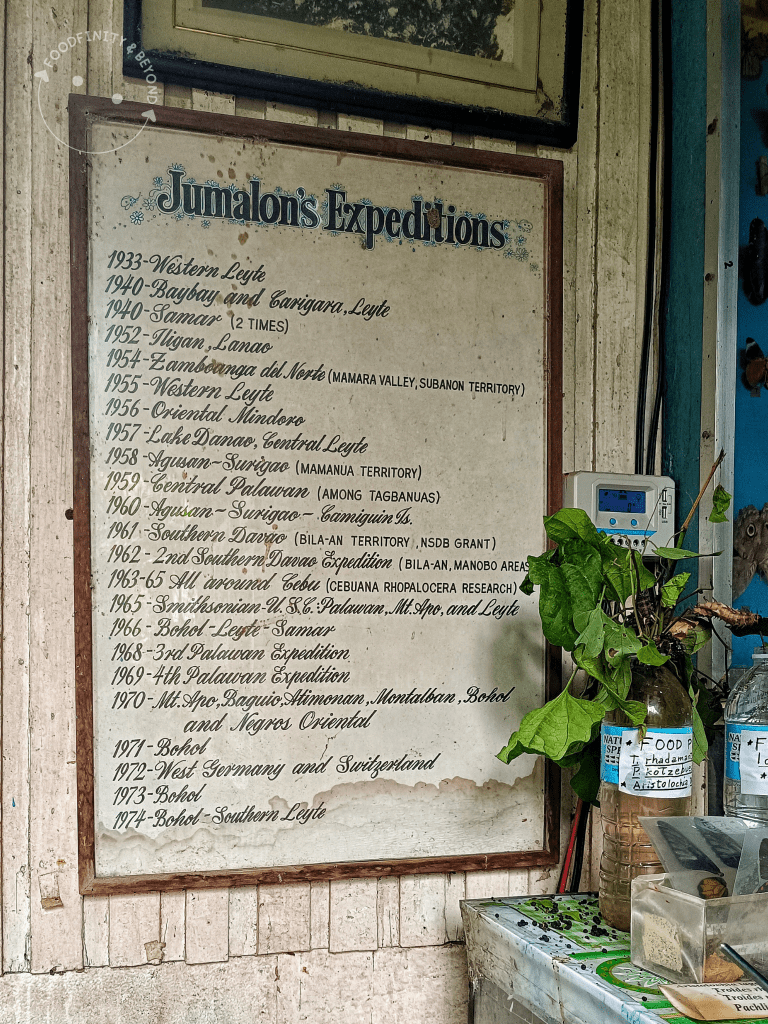 FOODFINITY & BEYOND
Jumalon's Expeditions
1933-Western Leyte
1940-Baybay and Carigara, Leyte
1940-Samar (2 TIMES)
1952-Iligan, Lanao
1954-Zamboanga del Norte (MAMARA VALLEY, SUBANON TERRITORY)
1955-Western Leyte
1956-Oriental Mindoro
1957-Lake Danao, Central Leyte
1958-Agusan-Surigao (MAMANUA TERRITORY)
1959-Central Palawan (AMONG TAGBANUAS)
1960-Agusan-Surigao-Camiguin Is.
1961-Southern Davao (BILA-AN TERRITORY, NSDB GRANT)
1962-2nd Southern Davao Expedition (BILA-AN, MANOBO AREAS
1963-65 All around Cebu (CEBUANA RHOPALOCERA RESEARCH)
1965-Smithsonian-U.S.C.:Palawan, Mt. Apo, and Leyte
1966-Bohol-Leyte-Samar
1968-3rd Palawan Expedition
1969-4th Palawan Expedition
1970-Mt. Apo, Baguio, Atimonan, Montalban, Bohol
and Negros Oriental
1971-Bohol
1972-West Germany and Switzerland
1973-Bohol
1974-Bohol-Southern Leyte
FOOD P
T. rhadaman
P. kotzebu
Aristolochia
Troides
Troides
Pachli